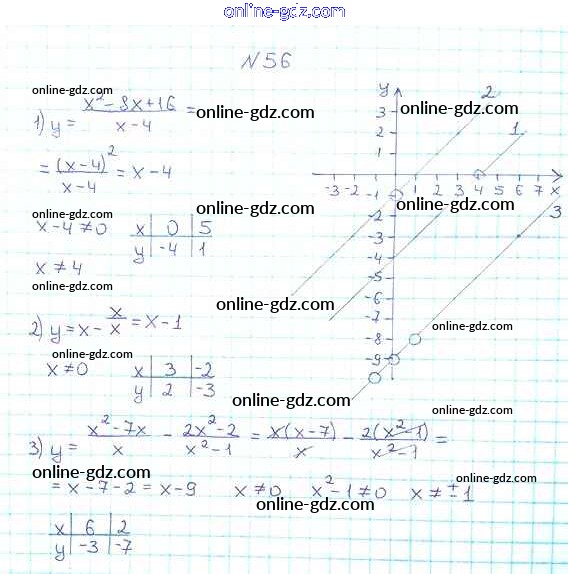 online-gdz.com
N56
1) y = (x² - 8x + 16)/(x - 4) = online-gdz.com
= (x-4)²/(x-4) = x - 4
x - 4 ≠ 0
x | 0 | 5
y | -4 | 1
x ≠ 4
online-gdz.com
2) y = x - x/x = x - 1
x ≠ 0
x | 3 | -2
y | 2 | -3
3) y = (x² - 7x)/x - (2x² - 2)/(x² - 1) = x(x-7)/x - 2(x² - 1)/(x² - 1) =
= x - 7 - 2 = x - 9   x ≠ 0   x² - 1 ≠ 0   x ≠ ±1
x | 6 | 2
y | -3 | -7
y
2
3
2
1
1
-3 -2 -1 1 2 3 4 5 6 7 x
3
-2
-3
-4
-5
-6
-7
-8
-9
online-gdz.com
online-gdz.com
online-gdz.com
online-gdz.com
online-gdz.com
online-gdz.com
online-gdz.com
online-gdz.com
online-gdz.com
online-gdz.com
online-gdz.com
online-gdz.com
online-gdz.com